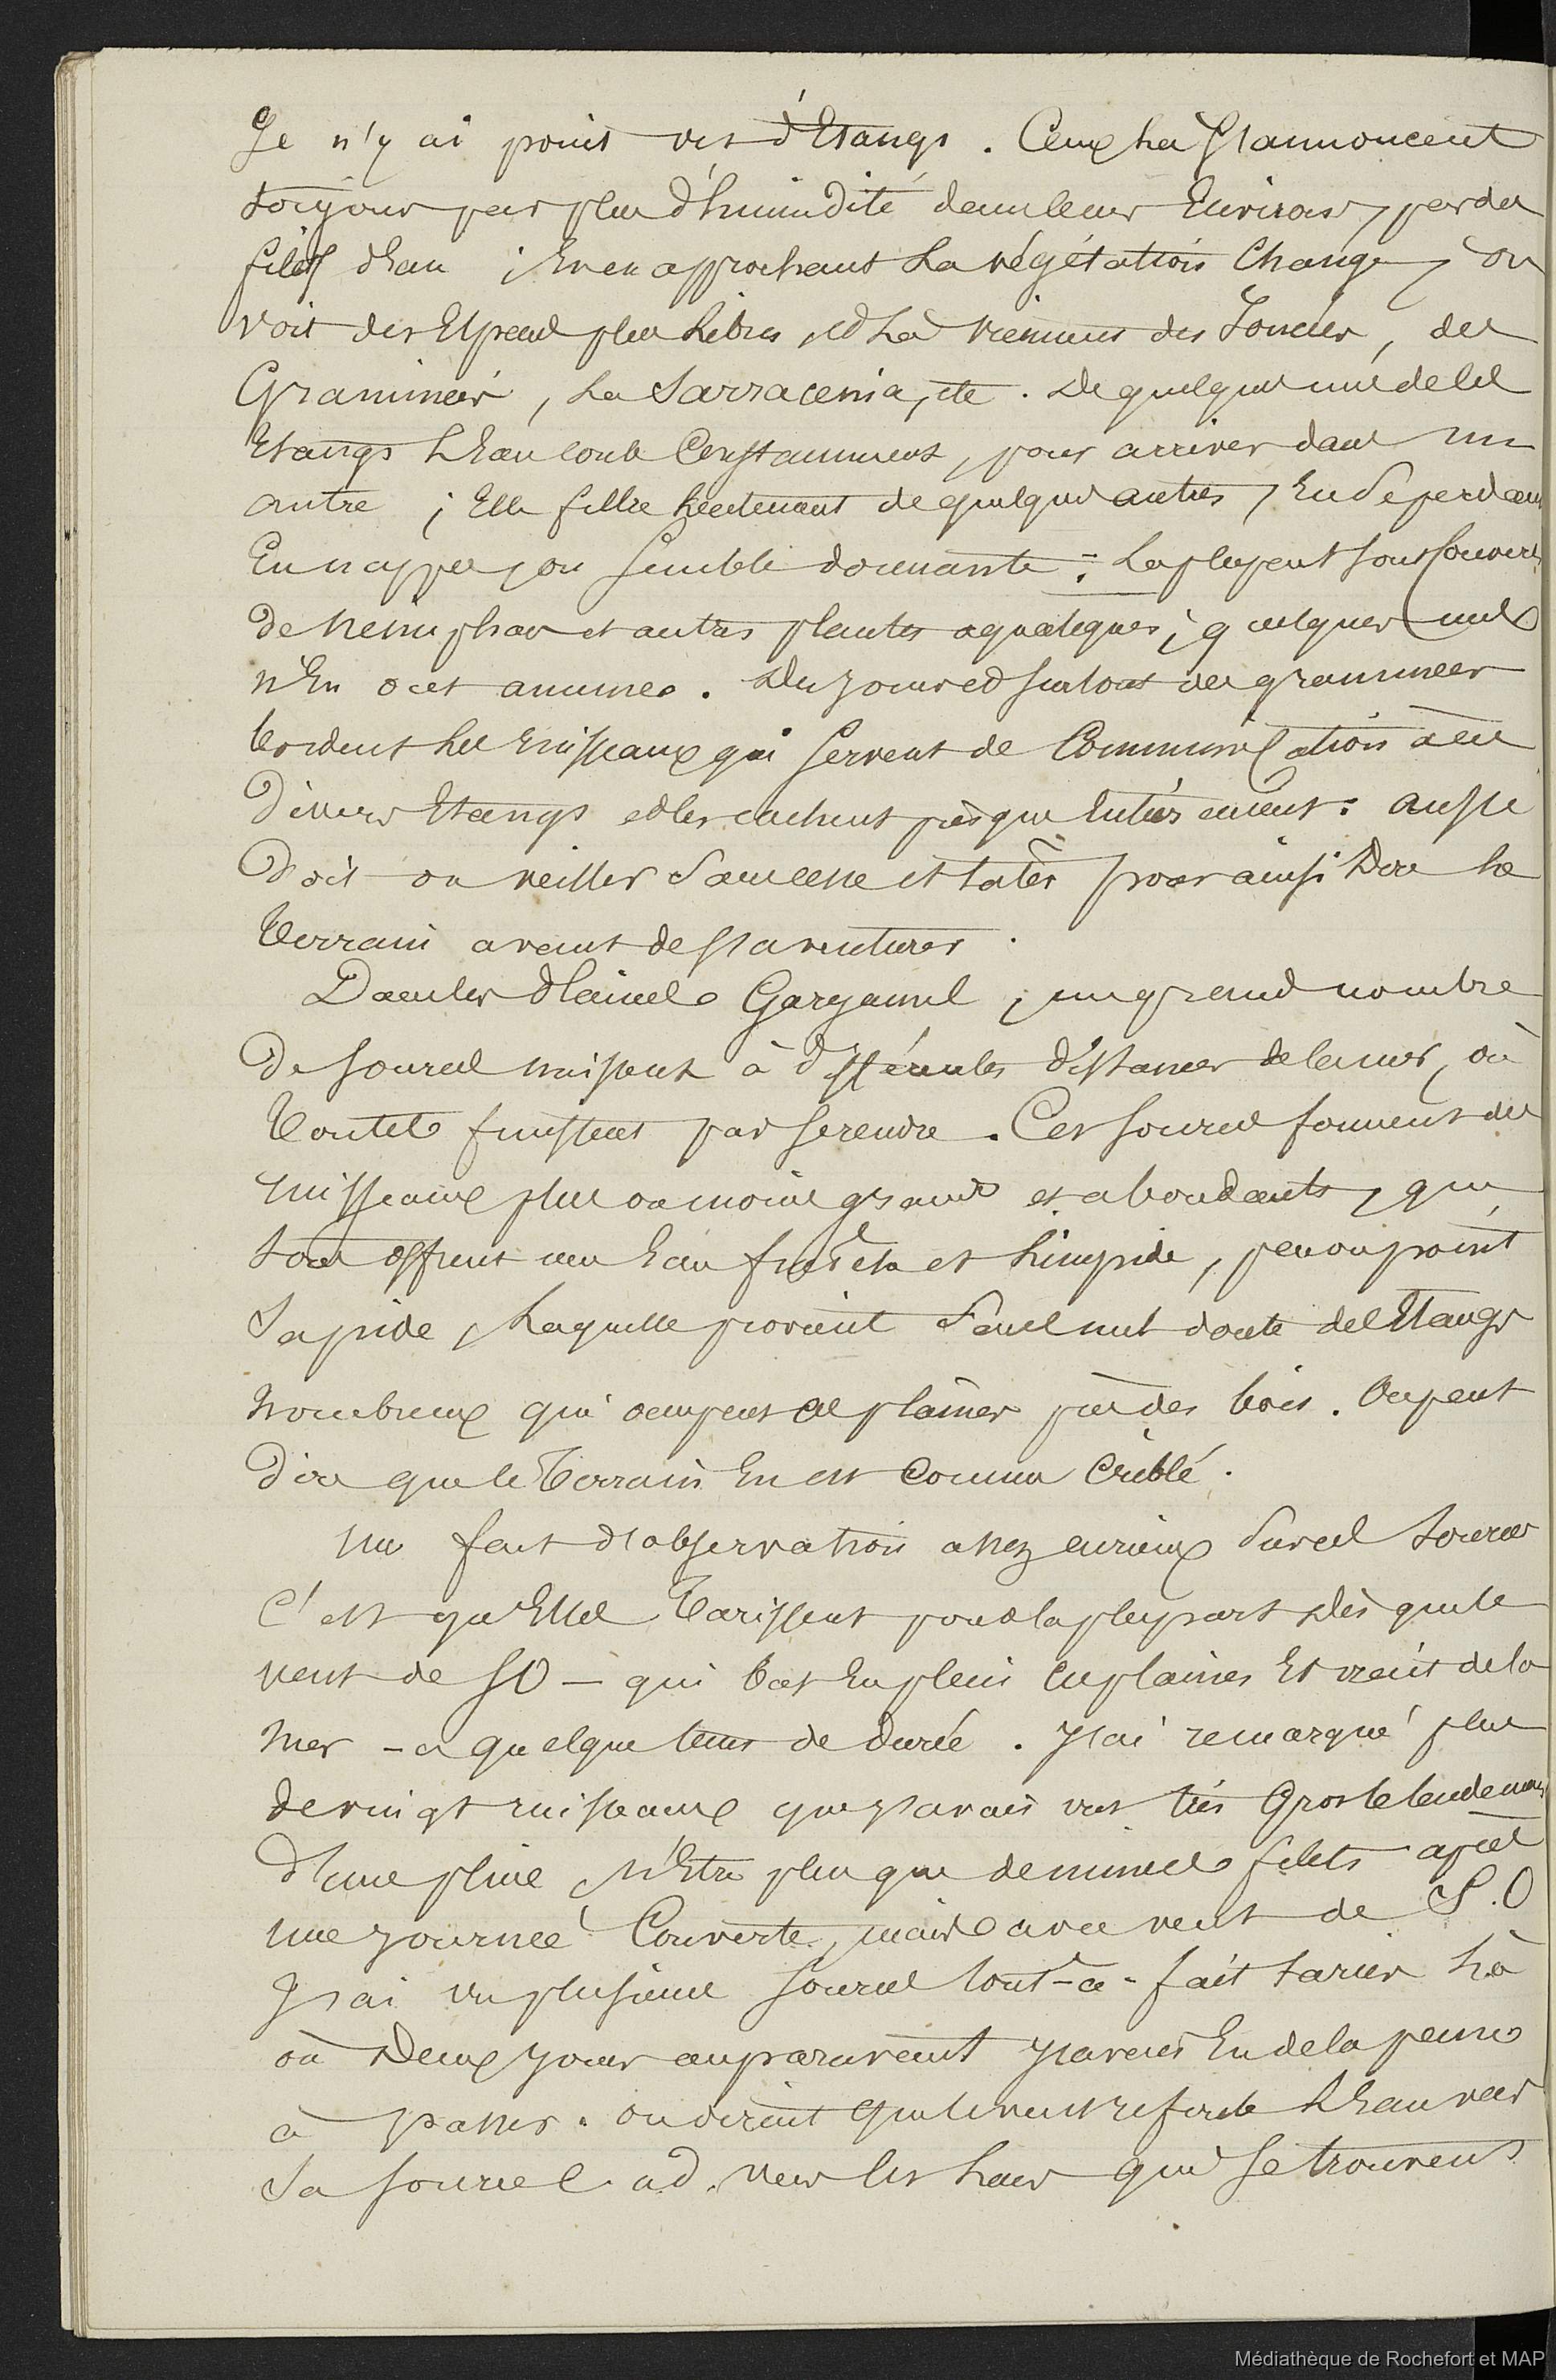 Je n'y ai point vu d'Etangs. Ceux la s'annoncent
toujours par plus d'humidité dans leurs Environs, par des
filets d'eau ; En en approchant la végétation Change, on
voit des Espaces plus libres, et là viennent des Joncées, des
Graminées, la Sarracenia, etc. De quelques uns de ces
Etangs L'Eau coule Constamment, pour arriver dans un
autre ; Elle filtre lentement de quelques autres, En se perdant
En nappes, ou semble dormante : La plupart sont couverts
de nenuphar et autres plantes aquatiques ; quelques uns
n'En ont aucunes. Des joncs et surtout des graminées
bordent les ruisseaux qui servent de Communication à ces
divers Etangs et les cachent presque Entièrement : aussi
doit-on veiller Sans cesse et tâter pour ainsi Dire le
terrain avant de s'aventurer.
Dans les Plaines Gargamel, un grand nombre
de sources naissent à différentes distances de la mer, où
toutes finissent par se rendre. Ces sources forment des
ruisseaux plus ou moins grands et abondants, qui
tous offrent une Eau fraîche et limpide, peu ou point
Sapide, Laquelle provient Sans nul doute des Etangs
nombreux qui occupent les plaines près des bois. On peut
dire que le terrain En est Comme Criblé.
Un fait d'observation assez curieux sur ces sources
c'est qu'Elles tarissent pour la plupart Dès que le
vent de SO — qui bat En plein les plaines Et vient de la
mer — a quelque tems de durée. J'ai remarqué plus
de vingt ruisseaux que j'avais vus très Gros le lendemain
d'une pluie, N'Etre plus que de minces filets après
une journée Couverte, mais avec vent de S.O
J'ai vu plusieurs sources tout-à-fait taries là
où Deux jours auparavant j'avais Eu de la peine
à passer. On dirait que le vent refoule L'Eau vers
sa source c. ad. vers les lieux qui se trouvent
Médiathèque de Rochefort et MAP